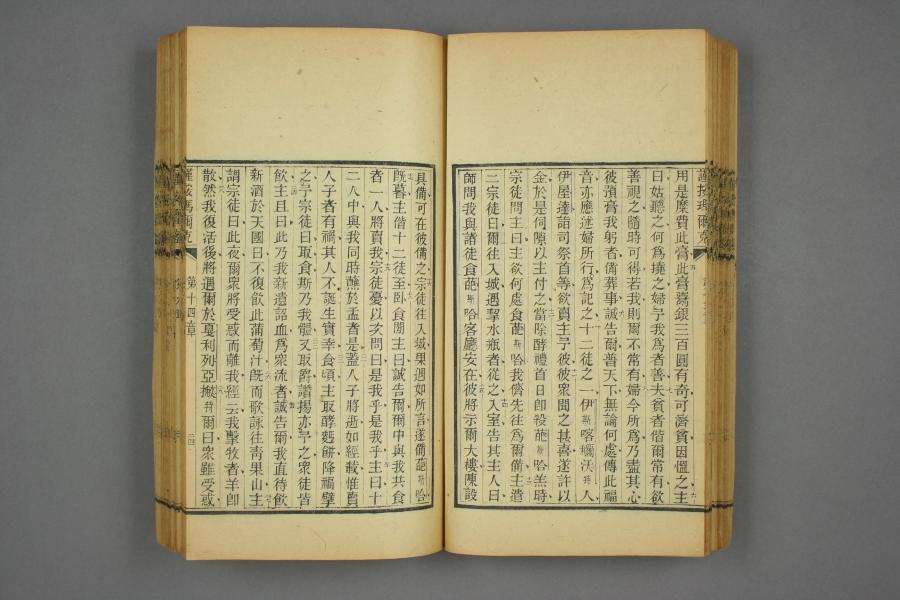 謹按馬爾克
用是糜費此膏此膏鬻銀三百圓有奇可濟貧因慍之主
曰姑聽之何爲撓之婦予我爲者善夫貧者偕爾常有欲
善視之隨時可得若我則爾不常有婦今所爲乃盡其心
彼預膏我躬者備葬事誠告爾普天下無論何處傳此福
音亦應述婦所行爲記之十二徒之一伊斯喀
伊屋達詣司祭首等欲賣主予彼彼衆聞之甚喜遂許以
金於是伺隙以主付之當除酵禮首日卽殺葩斯哈羔時
宗徒問主曰主欲何處食葩斯哈我儕先往爲爾備主遣
二宗徒曰爾往入城遇挈水瓶者從之入室告其主人曰
師問我與諸徒食葩斯哈客廳安在彼將示爾大樓陳設
具備可在彼備之宗徒往入城果遇如所言遂備葩斯哈
旣暮主偕十二徒至臥食間主曰誠告爾爾中與我共食
者一人將賣我宗徒憂以次問曰是我乎是我乎主曰十
二人中與我同時蘸於盂者是蓋人子將逝如經載惟賣
人子者有禍其人不誕生實幸食頃主取酵麪餅降福擘
之予宗徒曰取食斯乃我體又取爵讚揚亦予之衆徒皆
飲主且曰此乃我新遺詔血爲衆流者誠告爾我直待飲
新酒於天國日不復飲此葡萄汁旣而歌詠往青果山主
謂宗徒曰此夜爾衆將受惑而離我經云我擊牧者羊卽
散然我復活後將遇爾於戛利列亞撇特爾曰衆雖受惑
謹按馬爾克
第十四章